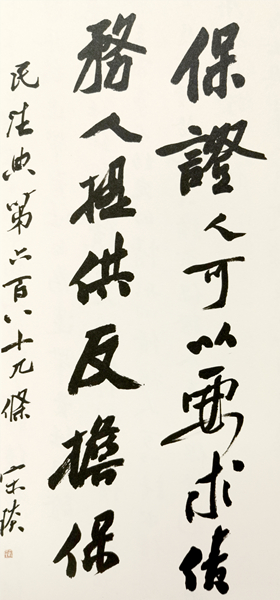 保證人可以要求債
務人提供反擔保
民法典第六百八十九條